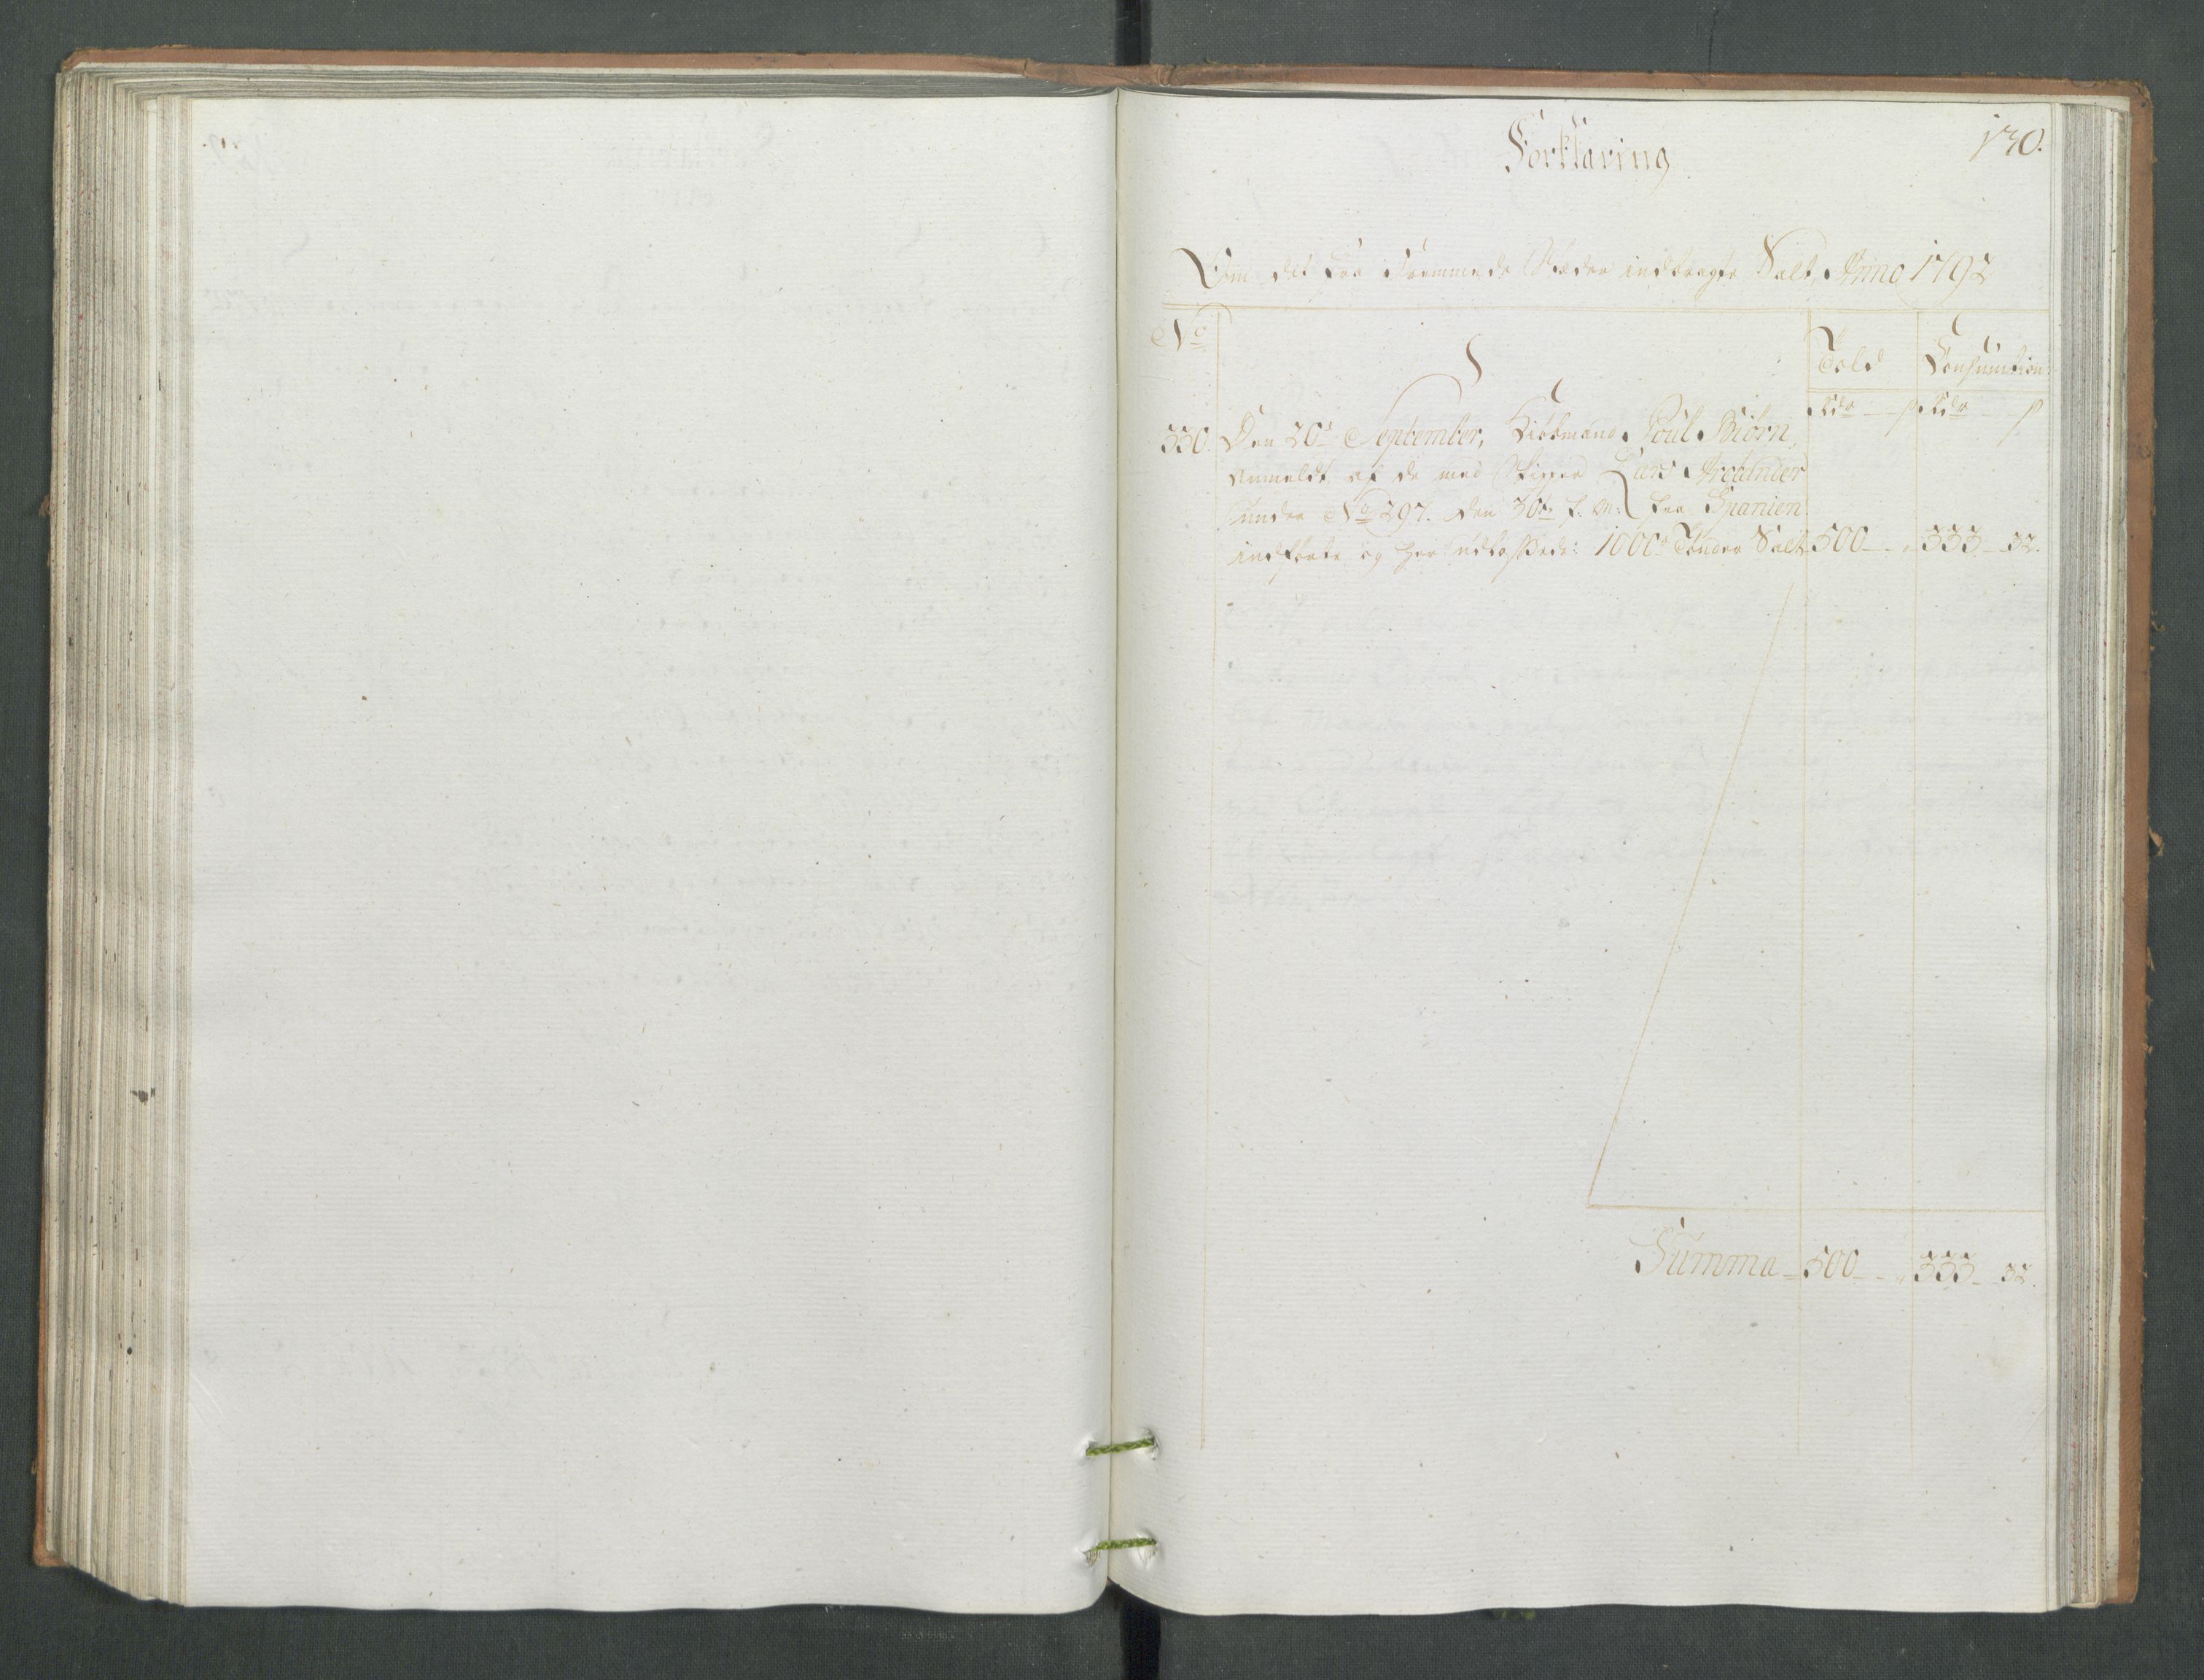 130.
Forklaring
Om det fra Fremmede Stæder indbragte Salt, Anno 1792
No
Told
Consumtion
Rdr ß Rdr ß
330. Den 20de September, Kiøbmand Poul Biørn,
Anmeldt af de med Skipper Lars
under No 297. den 30te f: M: fra Spanien
indførte og her udlossede: 1000de Tønder Salt 500 - " 333 - 32.
Summa - 500 - " 333 - 32.